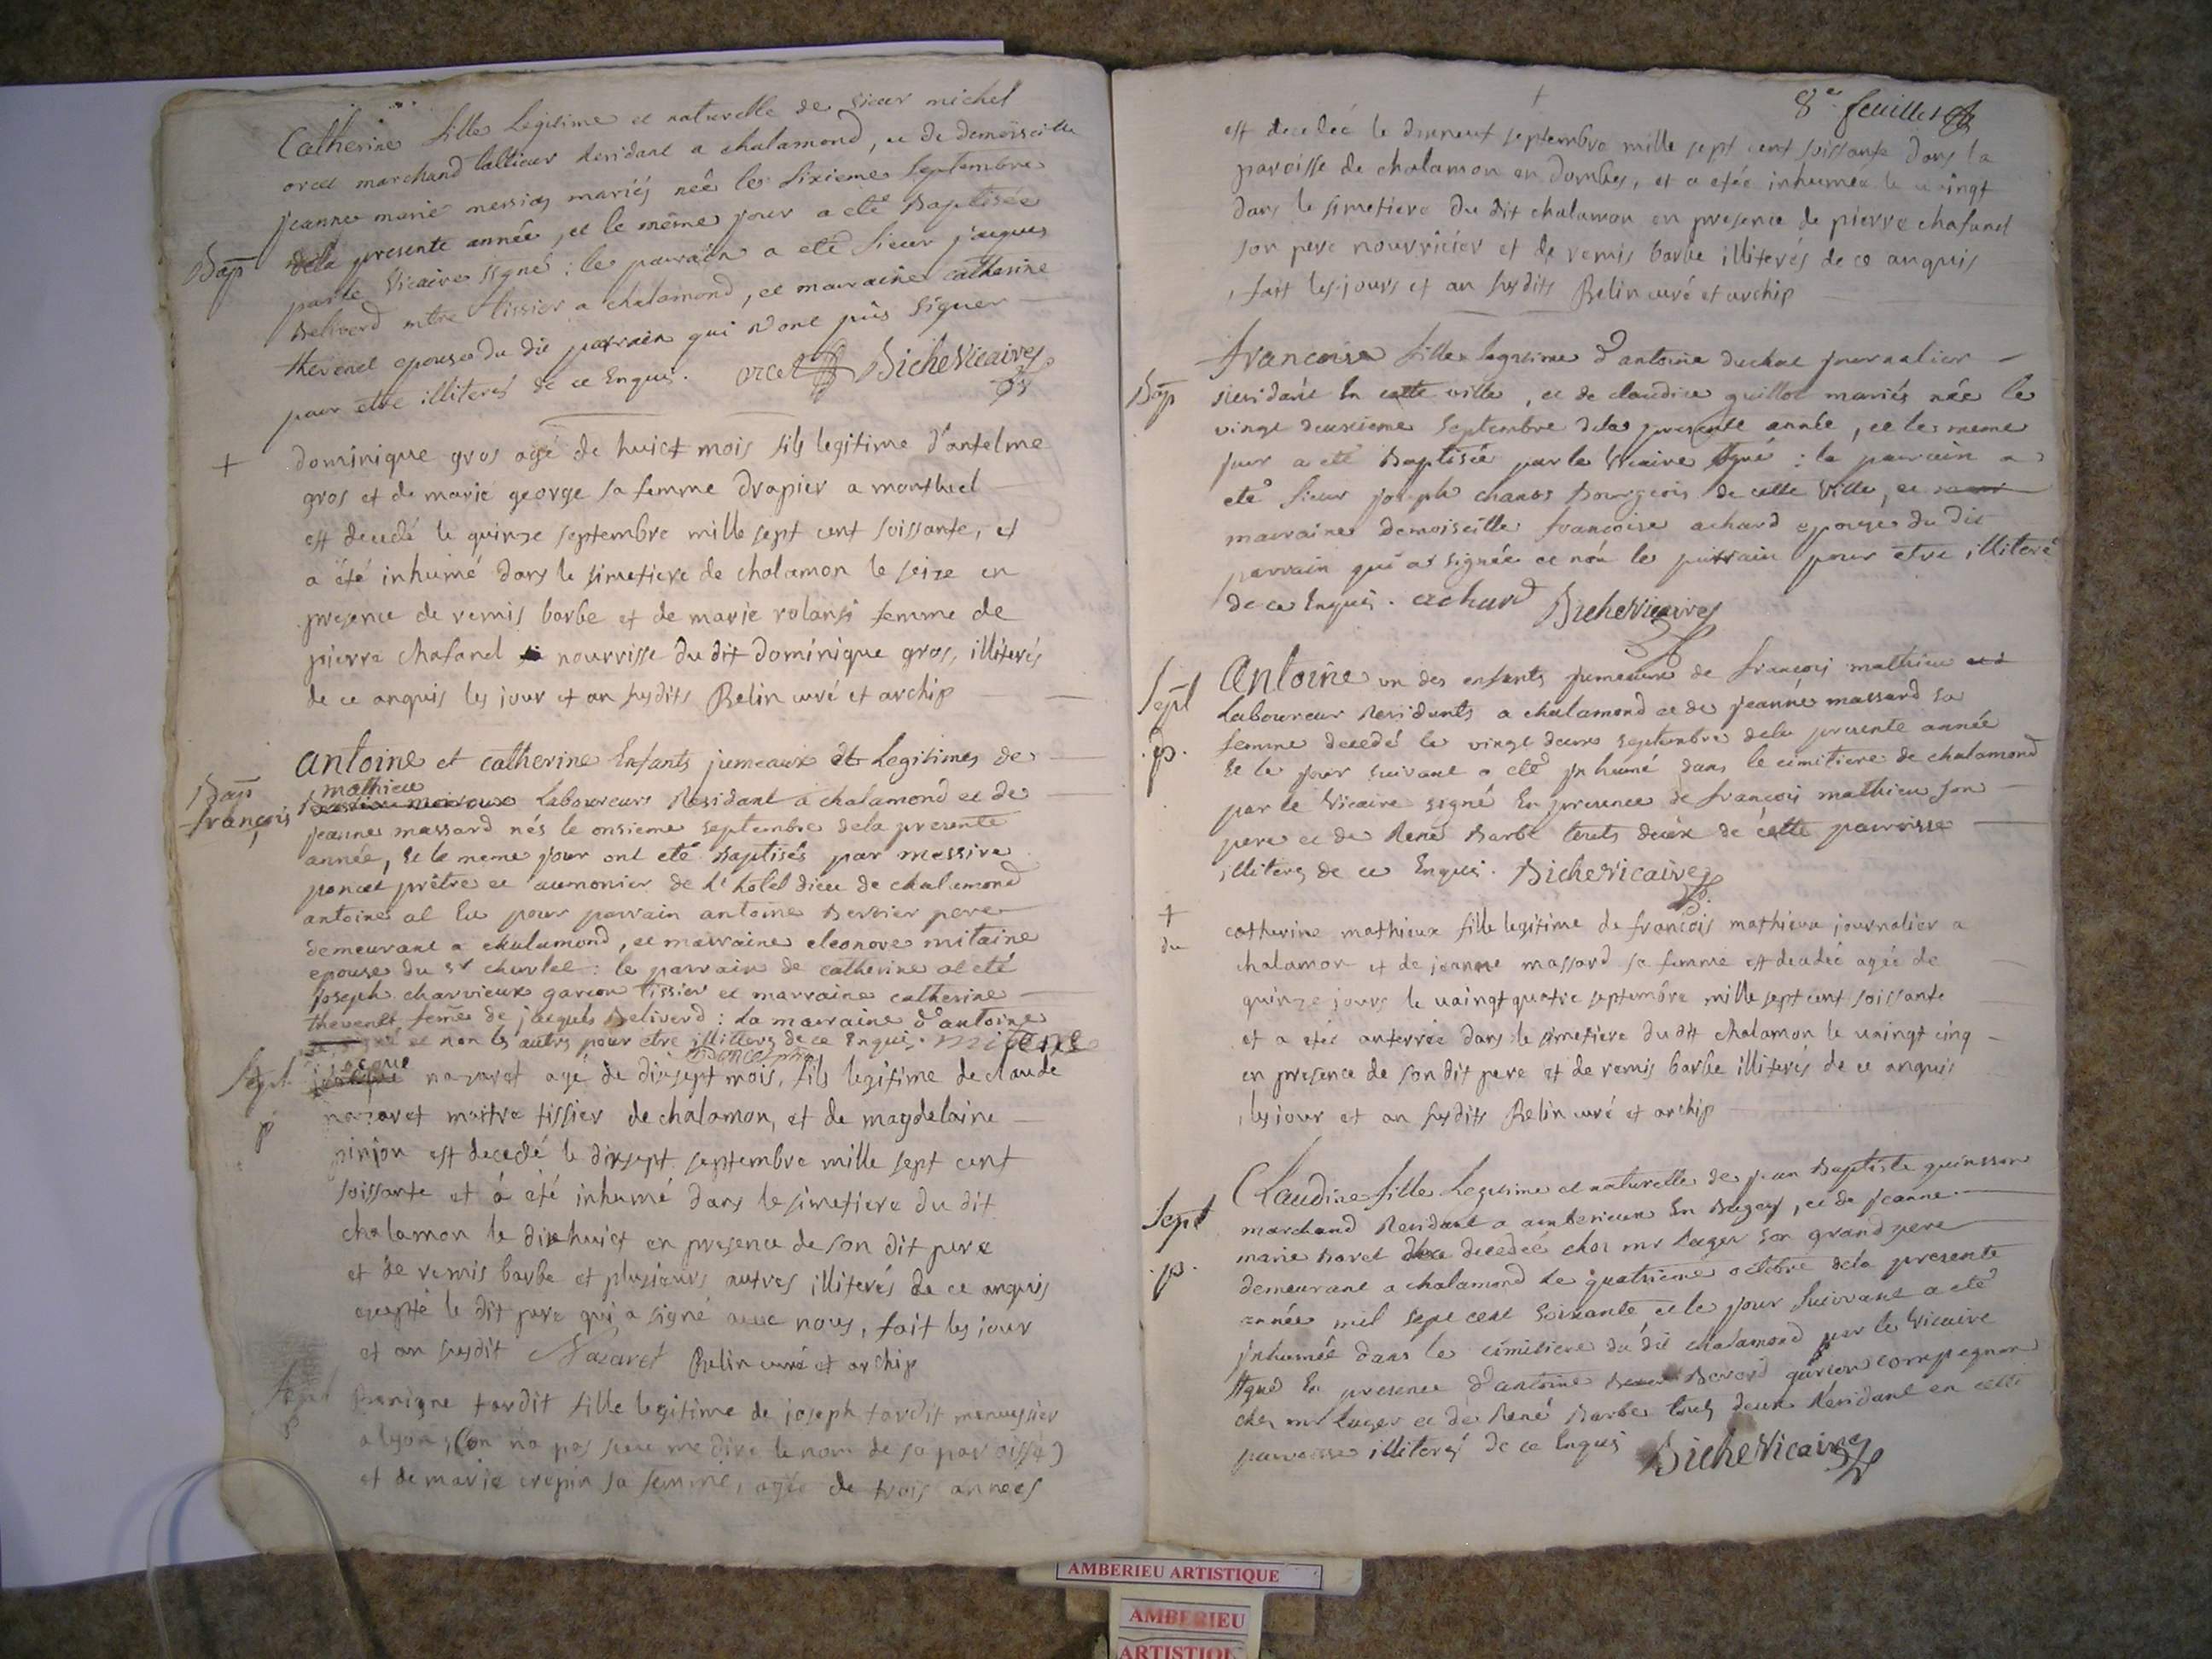 Catherine fille Legitime et naturelle de sieur michel
orcel marchand tallieur Residant a chalamond, et de demoiselle
jeanne marie messias mariés née le sixieme Septembre
Bap dela presente année, et le même jour a eté Baptisée
par le Vicaire signé : le parrain a eté sieur jacques
Beliverd mtre tissier a chalamond, et marraine catherine
thevenet epouse du dit parrain qui n'ont pûs signer
pour etre illiterés de ce Enquis. orcel Biche Vicaire
+ dominique gros agé de huict mois fils legitime d'antelme
gros et de marie george sa femme drapier a montluel
est decedé le quinze septembre mille sept cent soissante, et
a été inhumé dans le simetiere de chalamon le seize en
presence de remis barbe et de marie rolansi femme de
pierre chafanel nourrisse du dit dominique gros, illiterés
de ce anquis les jour et an susdits Belin curé et archip
antoine et catherine Enfants jumeaux et Legitimes de
Bap mathieu
françois Laboureurs Residant a chalamond et de
jeanne massard nés le onsieme septembre dela presente
année, et le meme jour ont eté Baptisés par messire
poncet prêtre et aumonier de l'hôtel dieu de chalamond
antoine at Eu pour parrain antoine Berbier pere
demeurant a chalamond, et marraine eleonore mitaine
epouse du sr charlet : le parrain de catherine at eté
joseph charvieux garcon tissier et marraine catherine
thevenet feme de jacques Beliverd : La marraine d'antoine
et non les autres pour etre illiteres de ce Enquis. mitene
poncet ptre
Sept. jacque nazaret agé de dixsept mois, fils legitime de claude
p nazaret maitre tissier de chalamon, et de magdelaine
pinjon est decedé le dixsept septembre mille sept cent
soissante et á été inhumé dans le simetiere du dit
chalamon le dixhuict en presence de son dit pere
et de remis barbe et plusieurs autres illiterés de ce anquis
excepté le dit pere qui a signé avec nous, fait les jour
et an susdit Nazaret Belin curé et archip
Sept benigne tardit fille legitime de joseph tardit menussier
p a lyon (on n'a pas sceu me dire le nom de sa paroisse)
et de marie crepin sa femme, agée de trois années
8e feuillet
+
est decedée le dixneuf septembre mille sept cent soissante dans la
paroisse de chalamon en dombes, et a etée inhumée le vaingt
dans le simetiere du dit chalamon en presence de pierre chafanel
son pere nourricier et de remis barbe illiterés de ce anquis
fait les jours et an susdits Belin curé et archip
francoise fille legitime d'antoine duchat journalier
Bap Residant En cette ville, et de claudine guillot mariés née le
vingt deuxieme septembre dela presente année, et le meme
jour a eté Baptisée par le Vicaire signé : le parrain a
eté sieur joseph chanos Bourgeois de cette Ville, et
marraine demoiselle francoise achard epouse du dit
parrain qui at signée et non le parrain pour etre illiteré
de ce Enquis. achard Biche Vicaire
Sept Antoine un des enfants jumeaux de françois mathieu
Laboureur Residants a chalamond et de jeanne massard sa
.p. femme decedé le vingt deux septembre dela presente année
et le jour suivant a eté jnhumé dans le cimitiere de chalamond
par le Vicaire signé En presence de françois mathieu son
pere et de René Barbe touts deux de cette parroisse
illiteres de ce Enquis. Biche Vicaire
+ catherine mathieux fille legitime de françois mathieux journalier a
du chalamon et de jeanne massard sa femme est decedée agée de
quinze jours le vaingt quatre septembre mille sept cent soissante
et a etée anterrée dans le simetiere du dit chalamon le vaingt cinq
en presence de son dit pere et de remis barbe illiterés de ce anquis
les jour et an susdits Belin curé et archip
Claudine fille Legitime et naturelle de jean Baptiste guinsson
Sept marchand Residant a amberieux En Bugey, et de jeanne
marie Boret decedeé chez mr Luger son grand pere
.p. demeurant a chalamond le quatrieme octobre dela presente
année mil sept cent soixante et le jour suivant a eté
jnhumée dans le cimitiere du dit chalamond par le Vicaire
signé En presence d'antoine Bererd garcon compagnon
chez mr Luger et de René Barbe touts deux Residant en cette
parroisse illiterés de ce Enquis Biche Vicaire
AMBERIEU ARTISTIQUE
AMBERIEU